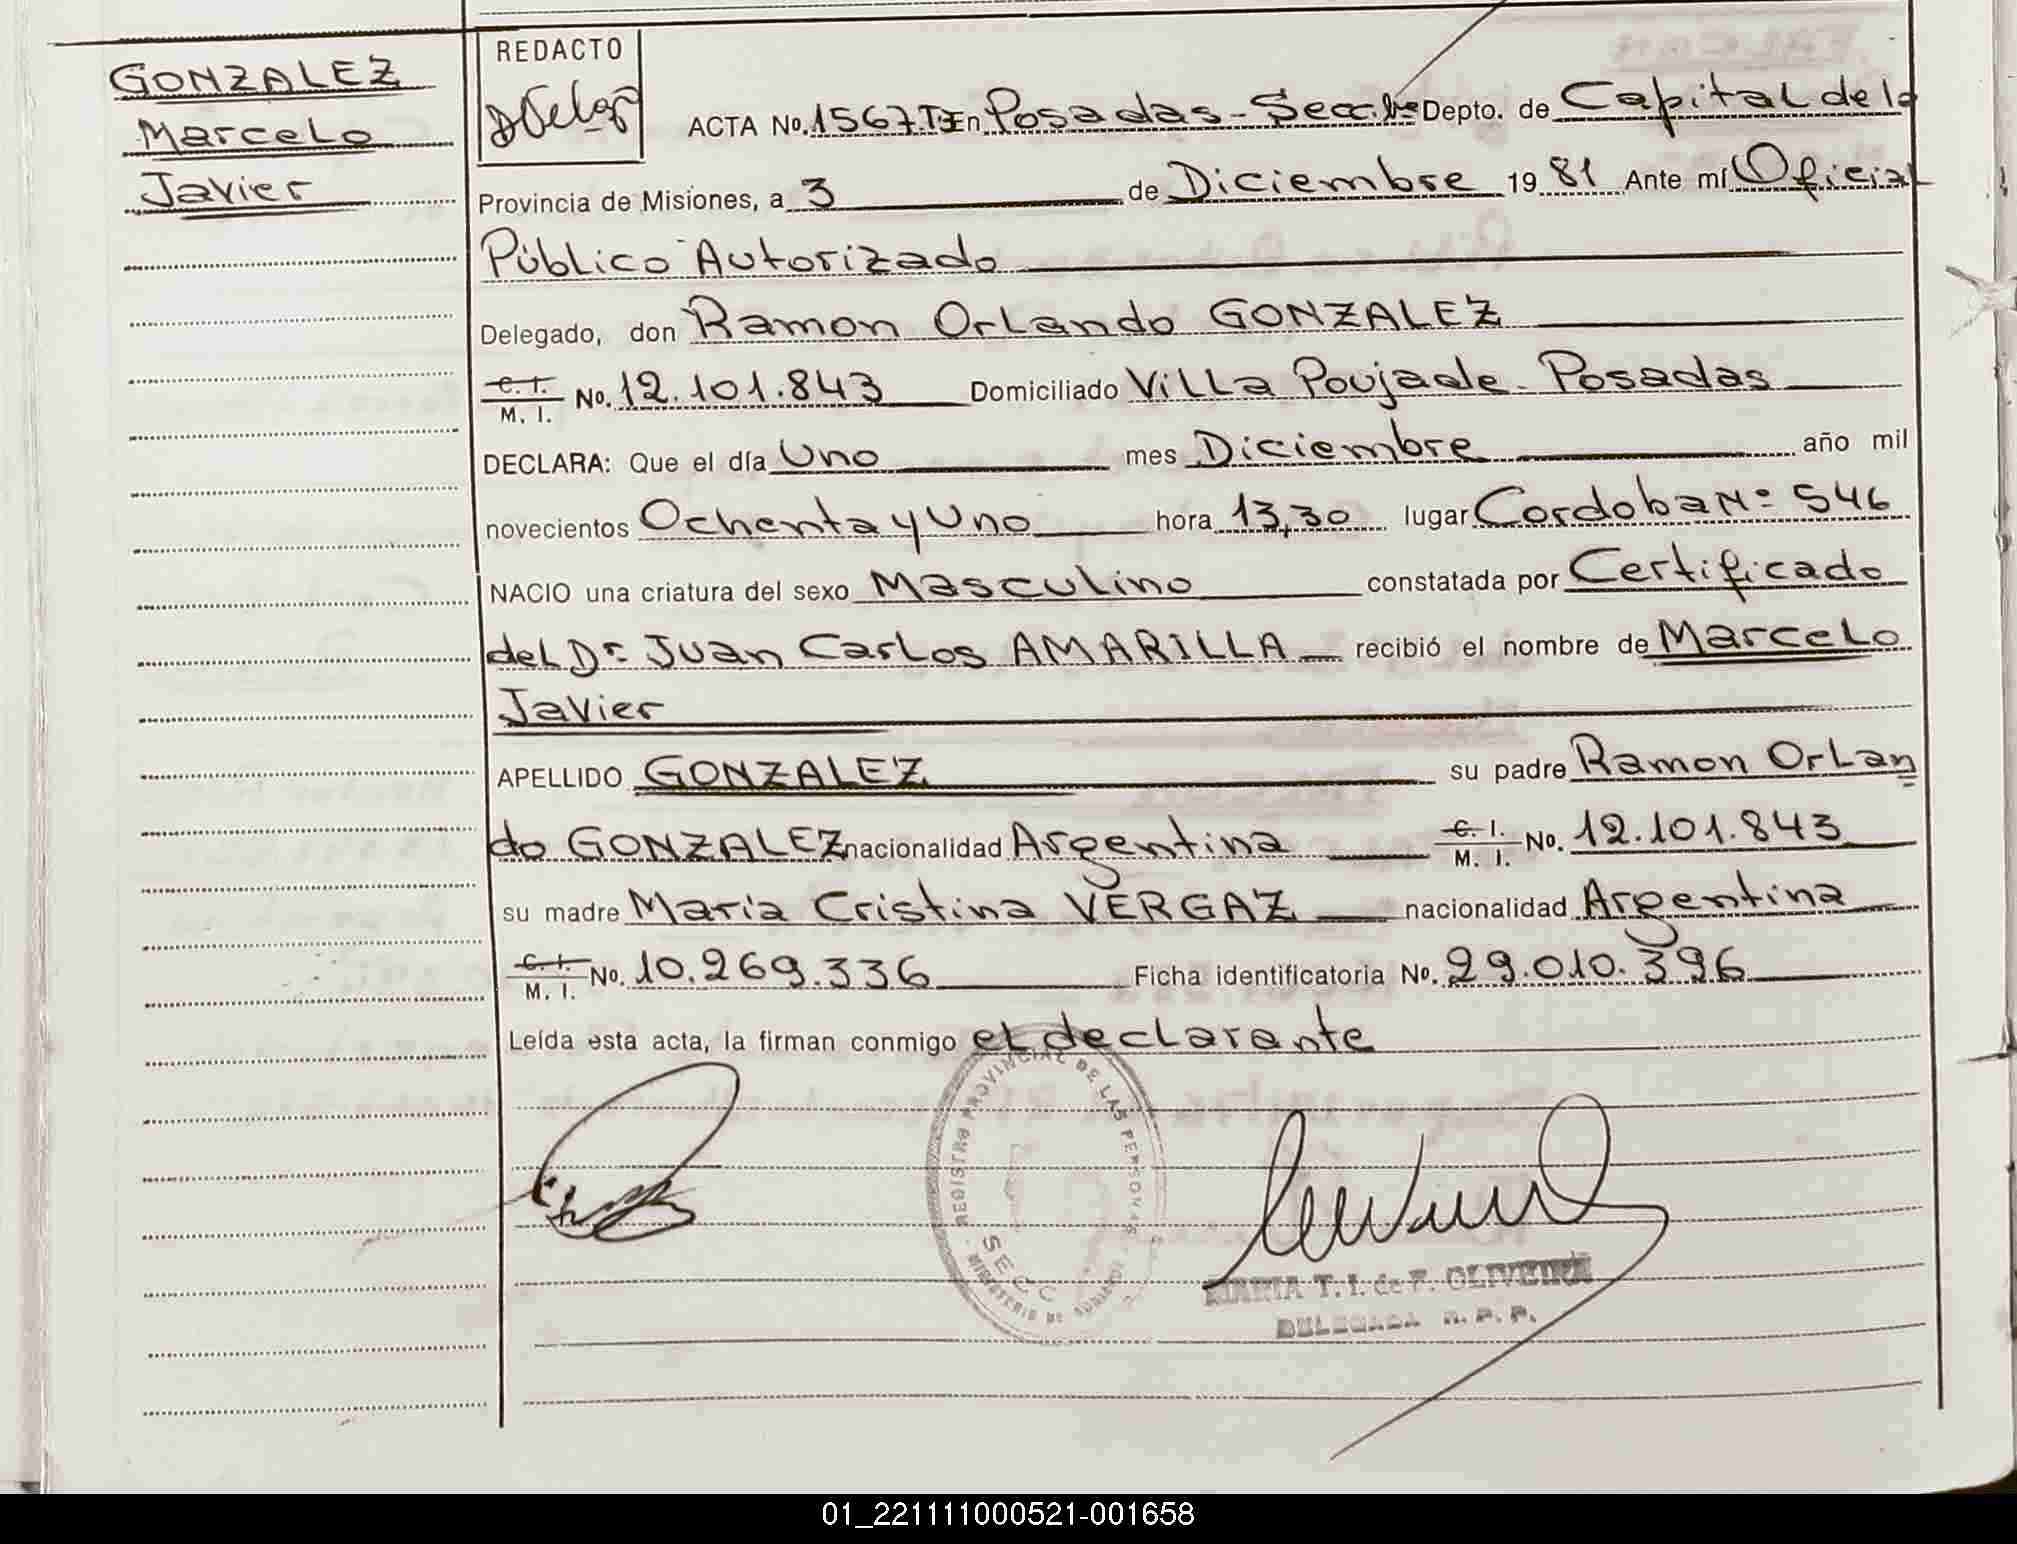 GONZALEZ
Marcelo
Javier
REDACTO
ACTA No. 1567 En Posadas - Secc. Depto. de Capital de la
Provincia de Misiones, a 3 de Diciembre 19 81 Ante mí Oficial
Público Autorizado
Delegado, don Ramon Orlando GONZALEZ
C. I.
M. I. No. 12.101.843 Domiciliado Villa Poujade - Posadas
DECLARA: Que el día Uno mes Diciembre año mil
novecientos Ochenta y Uno hora 13,30 lugar Cordoba Nº 546
NACIO una criatura del sexo Masculino constatada por Certificado
del Dr. Juan Carlos AMARILLA recibió el nombre de Marcelo
Javier
APELLIDO GONZALEZ su padre Ramon Orlan
do GONZALEZ nacionalidad Argentina C. I.
M. I. No. 12.101.843
su madre Maria Cristina VERGAZ nacionalidad Argentina
C. I.
M. I. No. 10.269.336 Ficha identificatoria No. 29.010.396
Leída esta acta, la firman conmigo el declarante
REGISTRO PROVINCIAL DE LAS PERSONAS
SECC
MINISTERIO DE GOBIERNO
MARIA T. I. de F. OLIVEIRA
DELEGADA R. P. P.
01_221111000521-001658